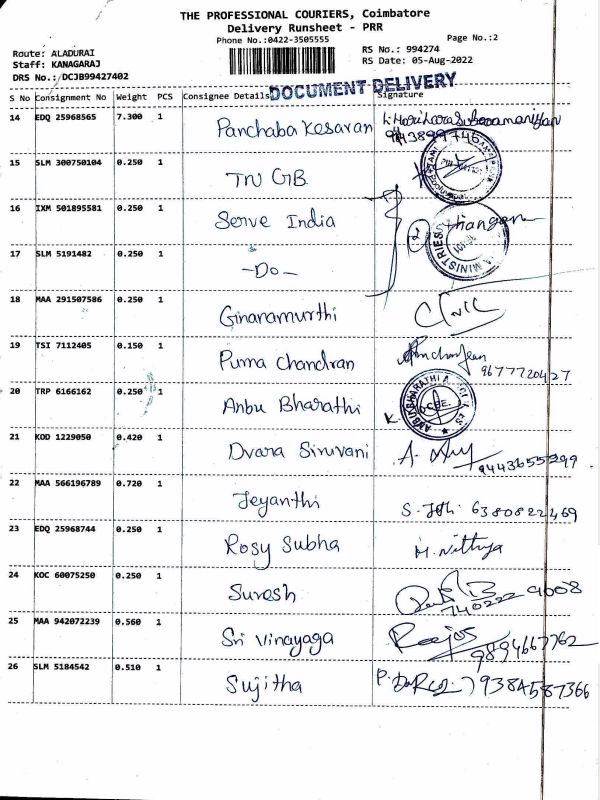 THE PROFESSIONAL COURIERS, Coimbatore
Delivery Runsheet - PRR
Phone No.:0422-3505555
Page No.:2
Route: ALADURAI
RS No.: 994274
Staff: KANAGARAJ
RS Date: 05-Aug-2022
DRS No.: DCJB99427402
DOCUMENT DELIVERY
S No Consignment No Weight PCS Consignee Details Signature
14 EDQ 25968565 7.300 1 Panchaba Kesavan
15 SLM 300750104 0.250 1 TN GB
16 IXM 501895581 0.250 1 Serve India
2
17 SLM 5191482 0.250 1 -Do-
MINISTRIES
18 MAA 291507586 0.250 1 Gnanamurthi
19 TSI 7112405 0.150 1 Purna Chandran
9677720427
20 TRP 6166162 0.250 1 Anbu Bharathi
CBE.
21 KOD 1229050 0.420 1 Dvara Siruvani A.
9443655299
22 MAA 566196789 0.720 1 Jeyanthi S. 6380822469
23 EDQ 25968744 0.250 1 Rosy Subha M. Nithya
24 KOC 60075250 0.250 1 Suresh
740222 9608
25 MAA 942072239 0.560 1 Sri Vinayaga
9894667762
26 SLM 5184542 0.510 1 Sujitha P. 9384587366